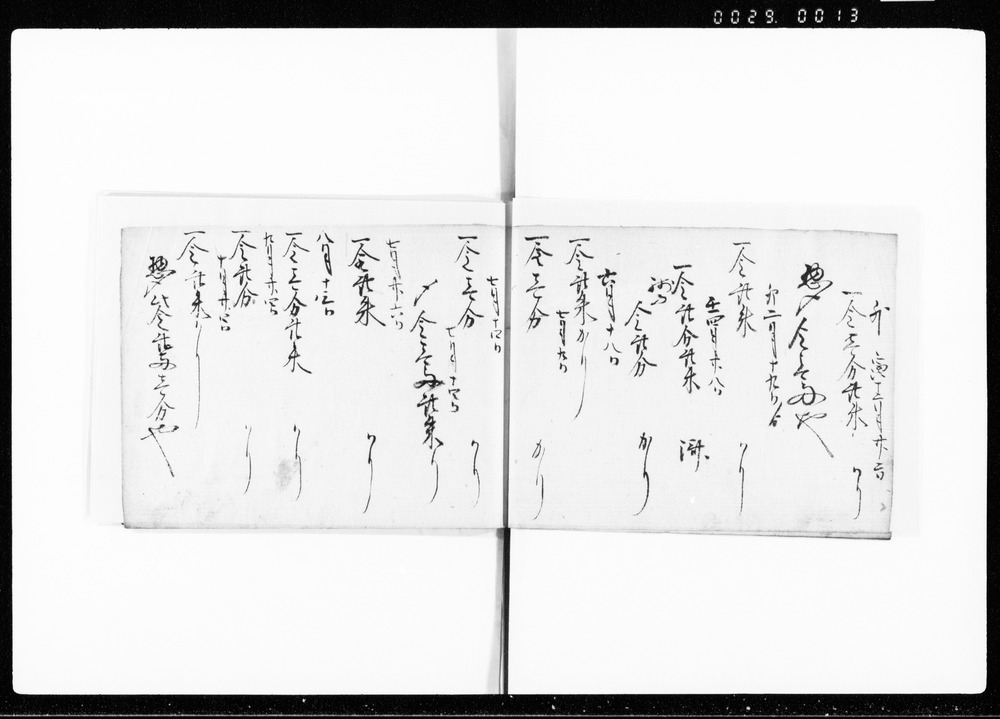 0029.0013
寅十二月廿六日
一金壱分弐朱
かり
惣〆金壱両也
卯二月十九日
一金弐朱
かり
四月廿八日
一金弐分弐朱
済
金弐分
かり
六月十八日
一金弐朱かり
七月九日
一金壱分
かり
七月十四日
一金壱分
かり
七月十四日
〆金壱両弐朱
かり
七月廿六日
一金弐朱
かり
八月十三日
一金壱分弐朱
かり
九月廿四日
一金弐分
かり
十月廿三日
一金弐朱かり
惣〆金弐両壱分也